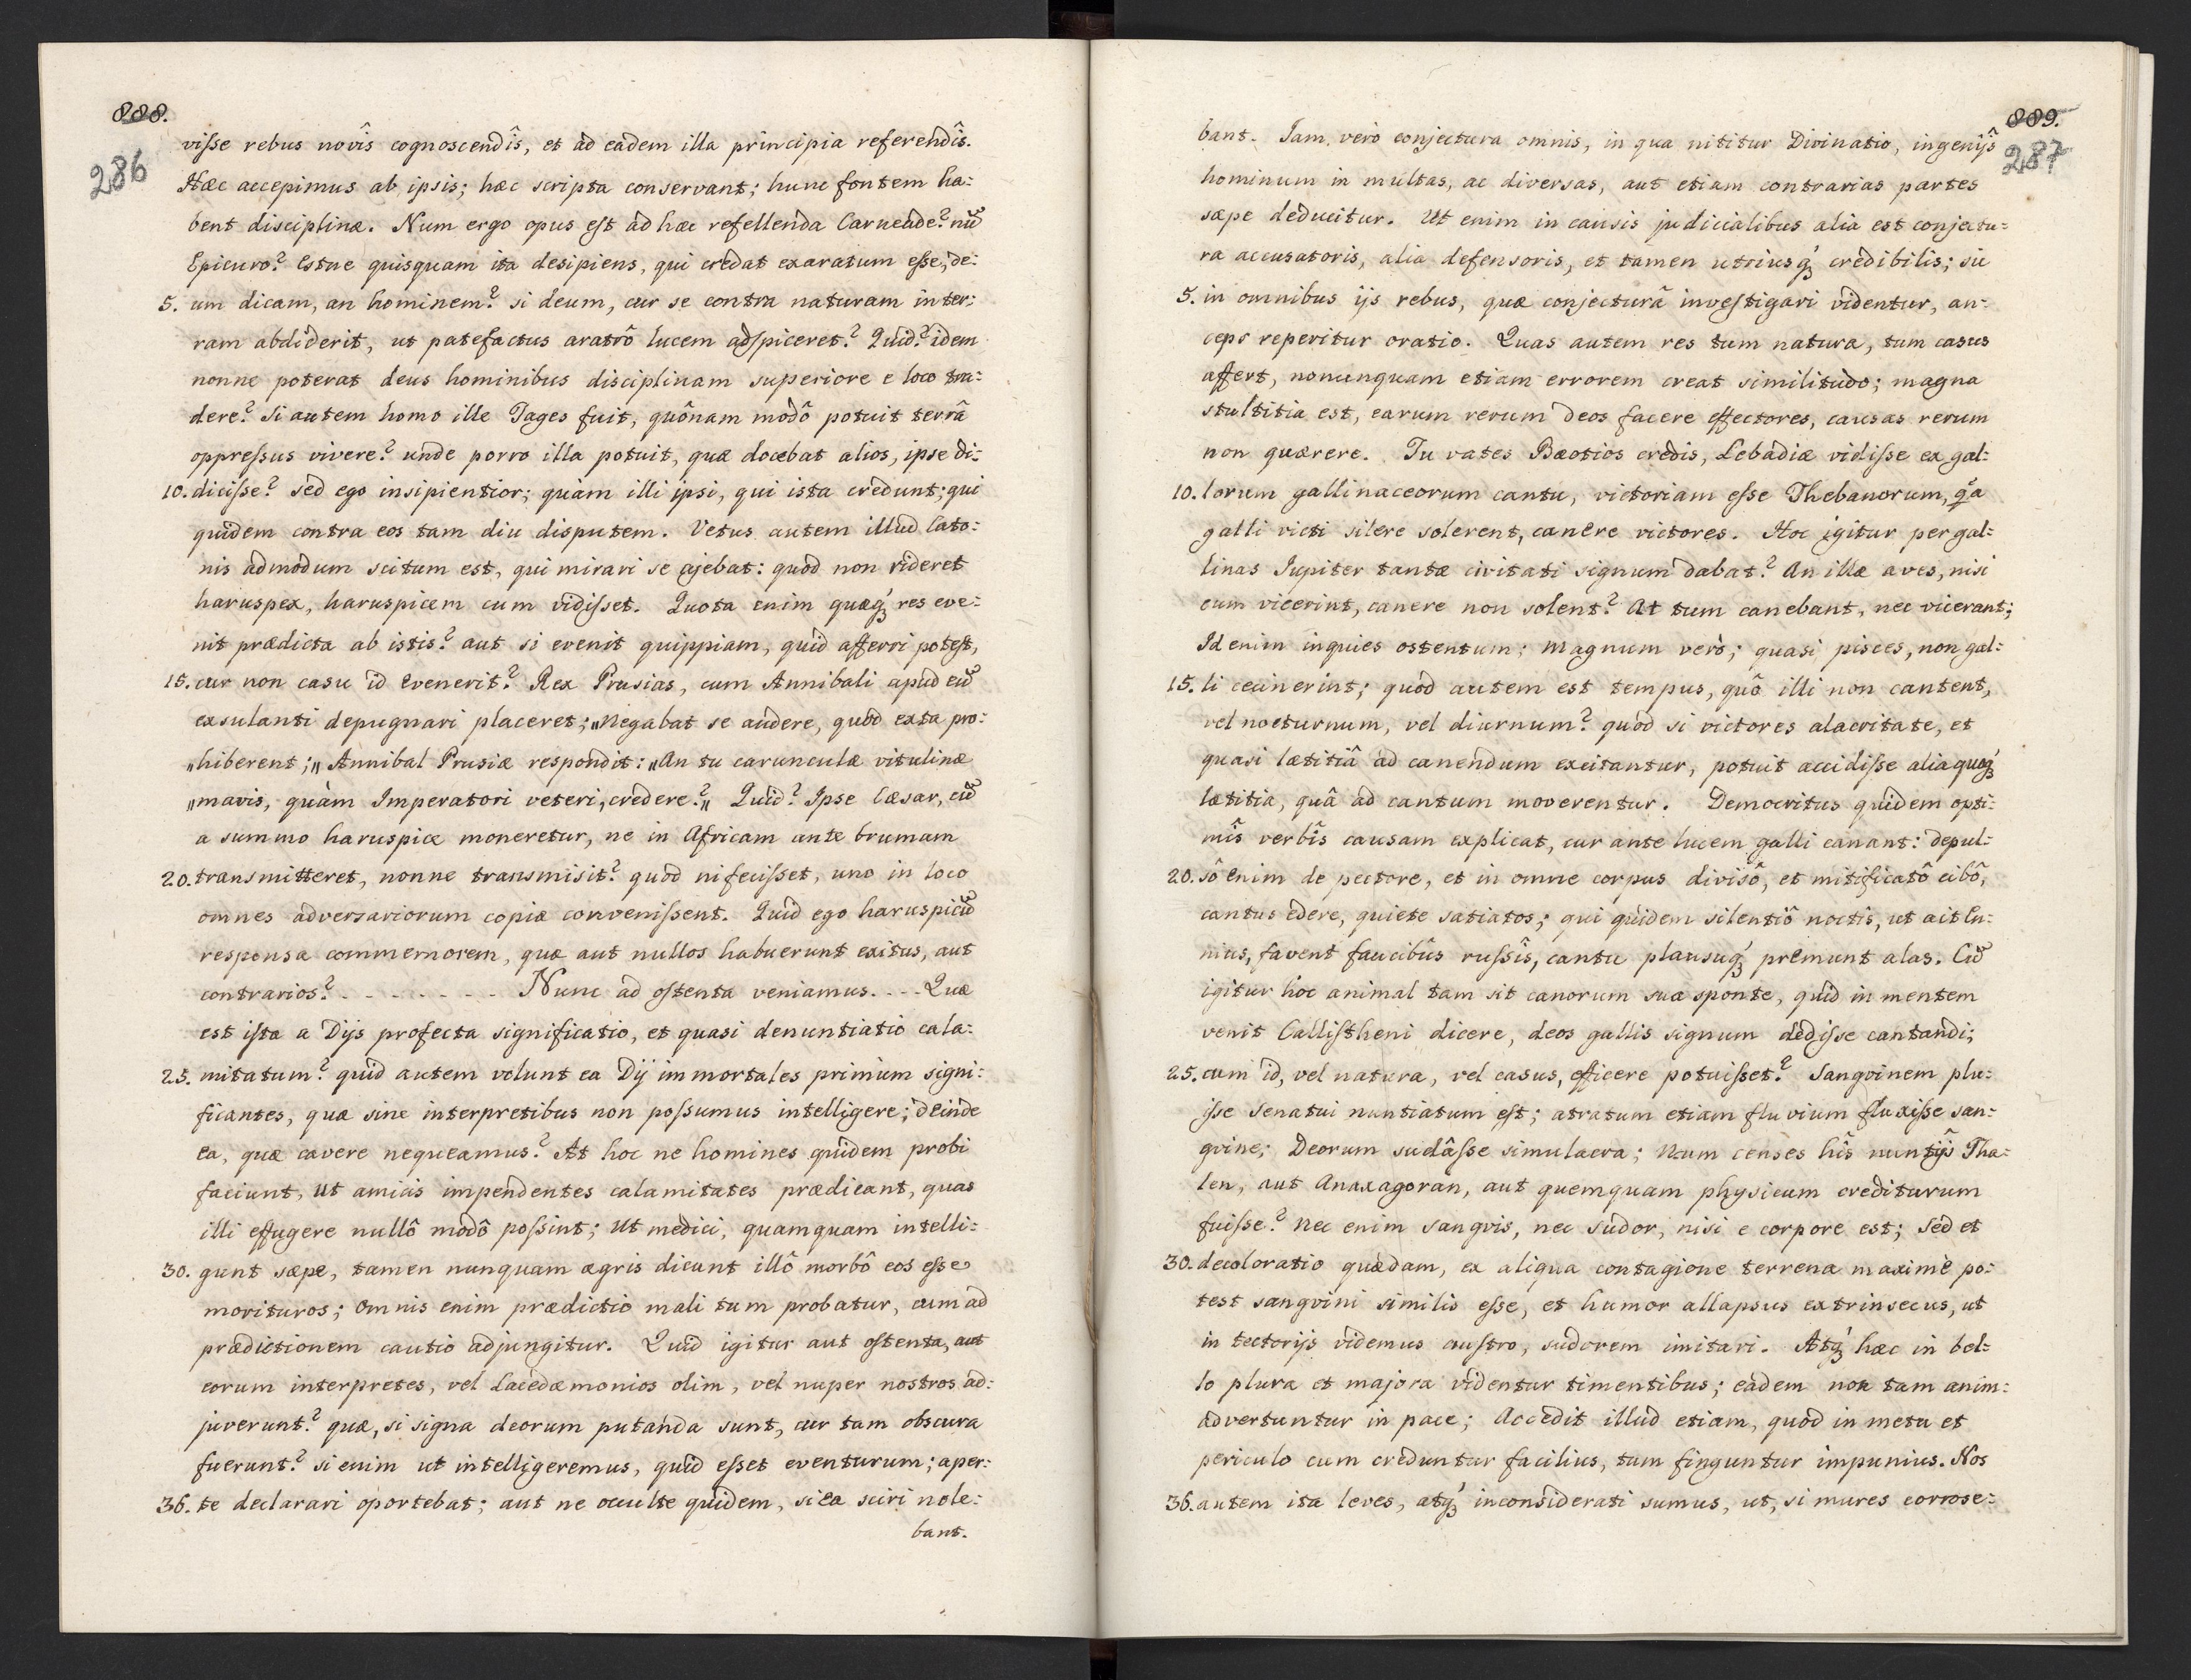 888.
286
visse rebus novîs cognoscendîs, et ad eadem illa principia referendîs.
Hæc accepimus ab ipsis; hæc scripta conservant; hunc fontem ha:
bent disciplinæ. Num ergo opus est ad hæc refellenda Carneade? nũ
Epicuro? Estne quisquam ita desipiens, qui credat exaratum esse, de:
5. um dicam, an hominem? si deum, cur se contra naturam in ter:
ram abdiderit, ut patefactus aratrô lucem adspiceret? Quid? idem
nonne poterat deus hominibus disciplinam superiore e loco tra:
dere? Si autem homo ille Tages fuit, quônam modô potuit terrâ
oppressus vivere? unde porro illa potuit, quæ docebat alios, ipse di:
10. dicisse? sed ego insipientior; quàm illi ipsi, qui ista credunt; qui
quidem contra eos tam diu disputem. Vetus autem illud Cato:
nis admodum scitum est, qui mirari se ajebat: quod non rideret
haruspex, haruspicem cum vidisset. Quota enim quæq́ȝ res eve:
nit prædicta ab istis? aut si evenit quippiam, quid afferri potest,
15. cur non casu id evenerit? Rex Prusias, cum Annibali apud eũ
exsulanti depugnari placeret; „Negabat se audere, quòd exta pro:
„hiberent;„ Annibal Prusiæ respondit: „An tu carunculæ vitulinæ
„mavis, quàm Imperatori veteri, credere?„ Quid? Ipse Cæsar, cũ
a summo haruspice moneretur, ne in Africam ante brumam
20. transmitteret, nonne transmisit? quod ni fecisset, uno in loco
omnes adversariorum copiæ convenissent. Quid ego haruspicũ
responsa commemorem, quæ aut nullos habuerunt exitus, aut
contrarios? - - - - - - - - Nunc ad ostenta veniamus. - - - Quæ
est ista a Dijs profecta significatio, et quasi denuntiatio cala:
25. mitatum? quid autem volunt ea Dij immortales primùm signi:
ficantes, quæ sine interpretibus non possumus intelligere; deinde
ea, quæ cavere nequeamus? At hoc ne homines quidem probi
faciunt, ut amicis impendentes calamitates prædicant, quas
illi effugere nullô modô possint; Ut medici, quamquam intelli:
30. gunt sæpe, tamen nunquam ægris dicunt illô morbô eos esse
morituros; omnis enim prædictio mali tum probatur, cum ad
prædictionem cautio adjungitur. Quid igitur aut ostenta, aut
eorum interpretes, vel Lacedæmonios olim, vel nuper nostros ad:
juverunt? quæ, si signa deorum putanda sunt, cur tam obscura
fuerunt? si enim ut intelligeremus, quid esset eventurum; aper:
36. te declarari oportebat; aut ne occulte quidem, si ea sciri nole:
bant.
889.
287
bant. Jam verò conjectura omnis, in qua nititur Divinatio, ingenijŝ
hominum in multas, ac diversas, aut etiam contrarias partes
sæpe deducitur. Ut enim in causis judicialibus alia est conjectu:
ra accusatoris, alia defensoris, et tamen utriusq́ȝ credibilis; sic
5. in omnibus ijs rebus, quæ conjecturâ investigari videntur, an:
ceps reperitur oratio. Quas autem res tum natura, tum casus
affert, nonunquam etiam errorem creat similitudo; magna
stultitia est, earum rerum deos facere effectores, causas rerum
non quærere. Tu vates Bæotios credis, Lebadiæ vidisse ex gal:
10. lorum gallinaceorum cantu, victoriam esse Thebanorum, q̃a
galli victi silere solerent, canere victores. Hoc igitur per gal:
linas Jupiter tantæ civitati signum dabat? An illæ aves, nisi
cum vicerint, canere non solent? At tum canebant, nec vicerant;
Id enim inquies ostentum; magnum verò; quasi pisces, non gal:
15. li cecinerint; quod autem est tempus, quô illi non cantent,
vel nocturnum, vel diurnum? quòd si victores alacritate, et
quasi lætitiâ ad canendum excitantur, potuit accidisse alia quoq́ȝ
lætitia, quâ ad cantum moverentur. Democritus quidem opti:
mîs verbîs causam explicat, cur ante lucem galli canant: depul:
20. sô enim de pectore, et in omne corpus divisô, et mitificatô cibô,
cantus edere, quiete satiatos; qui quidem silentiô noctis, ut ait En:
nius, favent faucibûs russîs, cantu plausuq́ȝ premunt alas. Cũ
igitur hoc animal tam sit canorum sua sponte, quid in mentem
venit Callistheni dicere, deos gallis signum dedisse cantandi;
25. cum id, vel natura, vel casus, efficere potuisset? Sangvinem plu:
isse Senatui nuntiatum est; atratum etiam fluvium fluxisse san:
gvine; Deorum sudâsse simulacra; Num censes hîs nuntijŝ Tha:
len, aut Anaxagoran, aut quemquam physicum crediturum
fuisse? nec enim sangvis, nec sudor, nisi e corpore est; sed et
30. decoloratio quædam, ex aliqua contagione terrena maximè po:
test sangvini similis esse, et humor allapsus extrinsecus, ut
in tectorijs videmus austro, sudorem imitari. Atq́ȝ hæc in bel:
lo plura et majora videntur timentibus; eadem non tam anim:
advertuntur in pace; Accedit illud etiam, quod in metu et
periculo cum creduntur facilius, tum finguntur impunius. Nos
36. autem ita leves, atq́ȝ inconsiderati sumus, ut, si mures corrose: